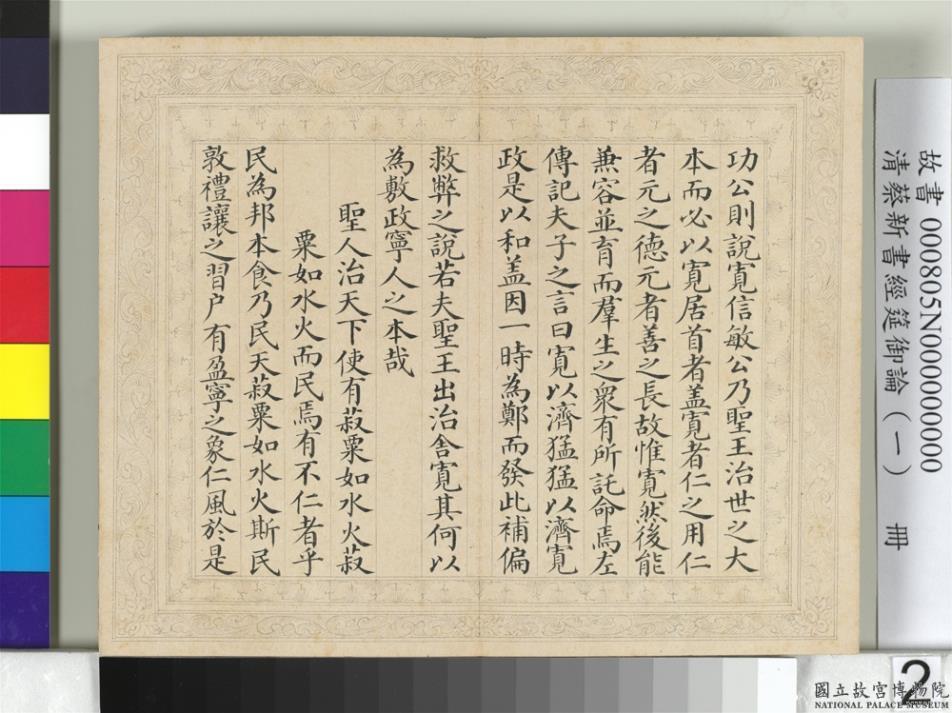 功公則說寬信敏公乃聖王治世之大
本而必以寬居首者盖寬者仁之用仁
者元之德元者善之長故惟寬然後能
兼容並育而羣生之衆有所託命焉左
傳記夫子之言曰寬以濟猛猛以濟寬
政是以和盖因一時為鄭而發此補偏
救弊之說若夫聖王出治舍寬其何以
為敷政寧人之本哉
聖人治天下使有菽粟如水火菽
粟如水火而民焉有不仁者乎
民為邦本食乃民天菽粟如水火斯民
敦禮讓之習户有盈寧之象仁風於是
故書 000805N000000000
清蔡新書經筵御論（一） 冊
2
國立故宮博物院
NATIONAL PALACE MUSEUM